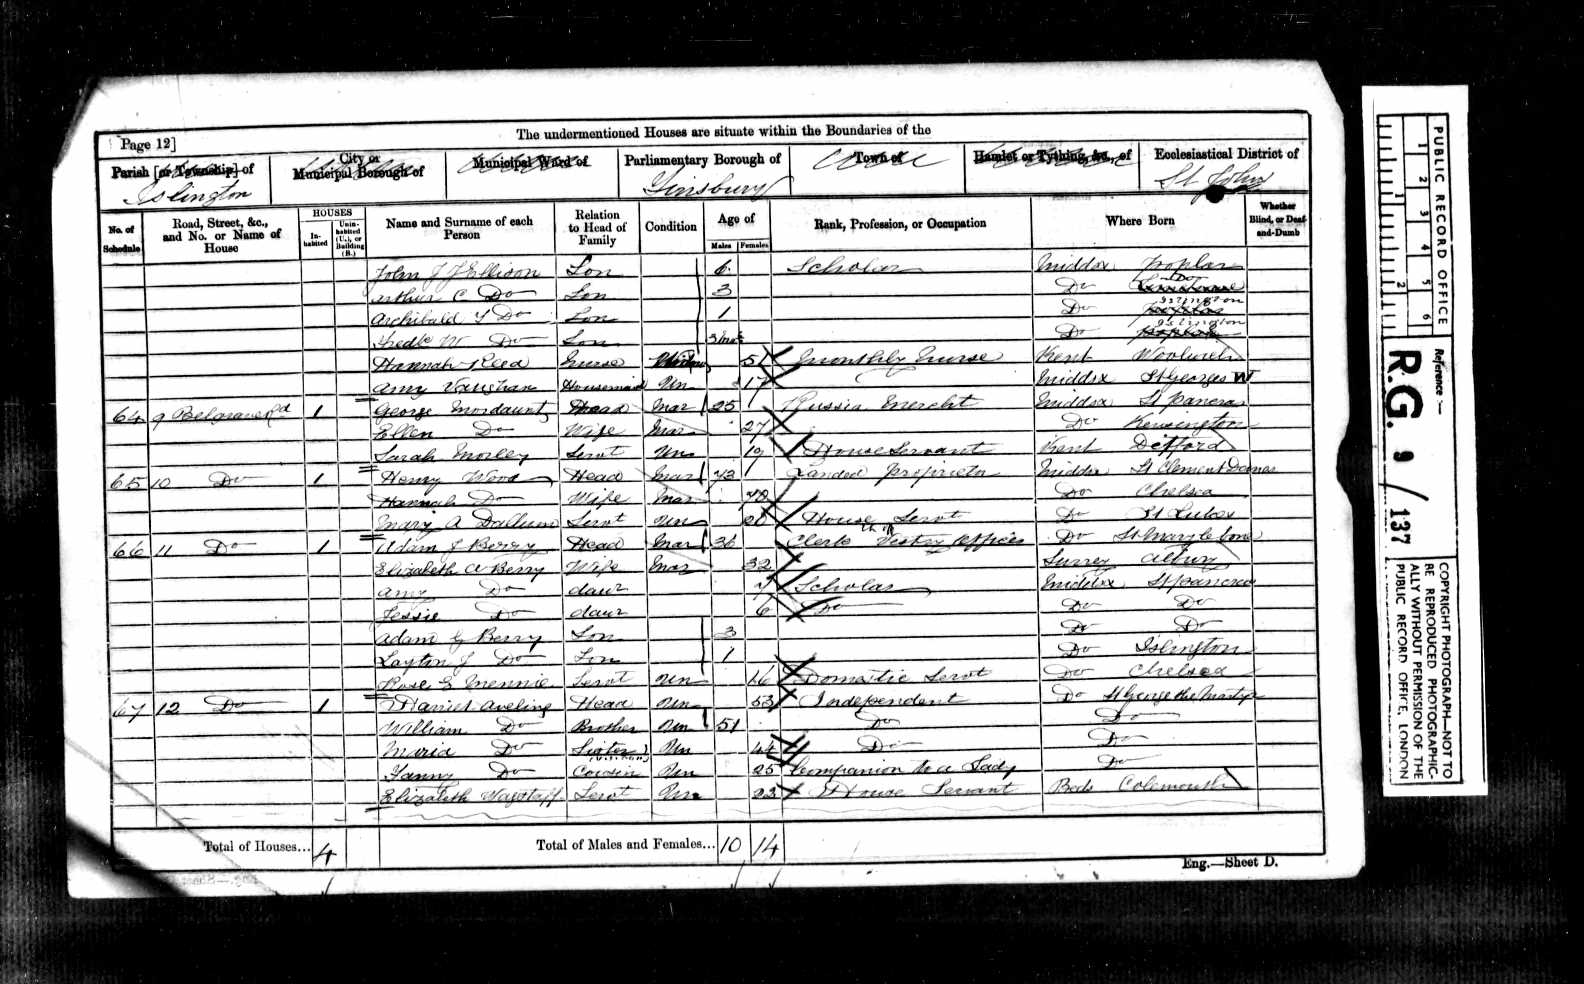 The undermentioned Houses are situate within the Boundaries of the
Page 12]
Parish [or Township] of
Islington
City or
Municipal Borough of
Municipal Ward of
Parliamentary Borough of
Finsbury
Town of
Hamlet or Tything, &c., of
Ecclesiastical District of
St John
No. of Schedule
Road, Street, &c., and No. or Name of House
HOUSES
In-habited
Unin-habited (U.), or Building (B.)
Name and Surname of each Person
Relation to Head of Family
Condition
Age of
Males
Females
Rank, Profession, or Occupation
Where Born
Whether Blind, or Deaf-and-Dumb
John J Jellison Son 6 Scholar Middsx Poplar
Arthur C Do Son 3 Do
Archibald Do Son 1 Do Islington
Fredk W Do Son 3 Mos Do Islington
Hannah Reed Nurse Widow 51 Monthly Nurse Kent Woolwich
Amy Vaughan Housemaid Un 17 Middsx St Georges W
64 9 Belgrave Rd 1 George Mordaunt Head Mar 25 Russia Mercht Middsx St Pancras
Ellen Do Wife Mar 27 Do Kensington
Sarah Morley Servt Un 19 House Servant Kent Detford
65 10 Do 1 Henry Wood Head Mar 73 Landed Proprietor Middsx St Clement Danes
Hannah Do Wife Mar 70 Do Chelsea
Mary A Dallum Servt Un 20 House Servt Do St Lukes
66 11 Do 1 Adam J Berry Head Mar 36 Clerk in Vestry Offices Do St Marylebone
Elizabeth A Berry Wife Mar 32 Surrey Albury
Amy Do daur 7 Scholar Middsx St Pancras
Jessie Do daur 6 Do Do Do
Adam G Berry Son 3 Do Do
Layton J Do Son 1 Do Islington
Rose E Mennie Servt Un 16 Domestic Servt Do Chelsea
67 12 Do 1 Harriet Aveling Head Un 53 Independent Do St George the Martyr
William Do Brother Un 51 Do Do
Maria Do Sister Un 44 Do Do
Fanny Do Cousin Un 25 Companion to a Lady Do
Elizabeth Wagstaff Servt Un 23 House Servant Beds Colemouth
Total of Houses... 4
Total of Males and Females... 10 14
Eng.—Sheet D.
PUBLIC RECORD OFFICE
1 2 3 4 5 6
1 2
Reference :-
R.G. 9 / 137
COPYRIGHT PHOTOGRAPH—NOT TO
BE REPRODUCED PHOTOGRAPHIC-
ALLY WITHOUT PERMISSION OF THE
PUBLIC RECORD OFFICE, LONDON